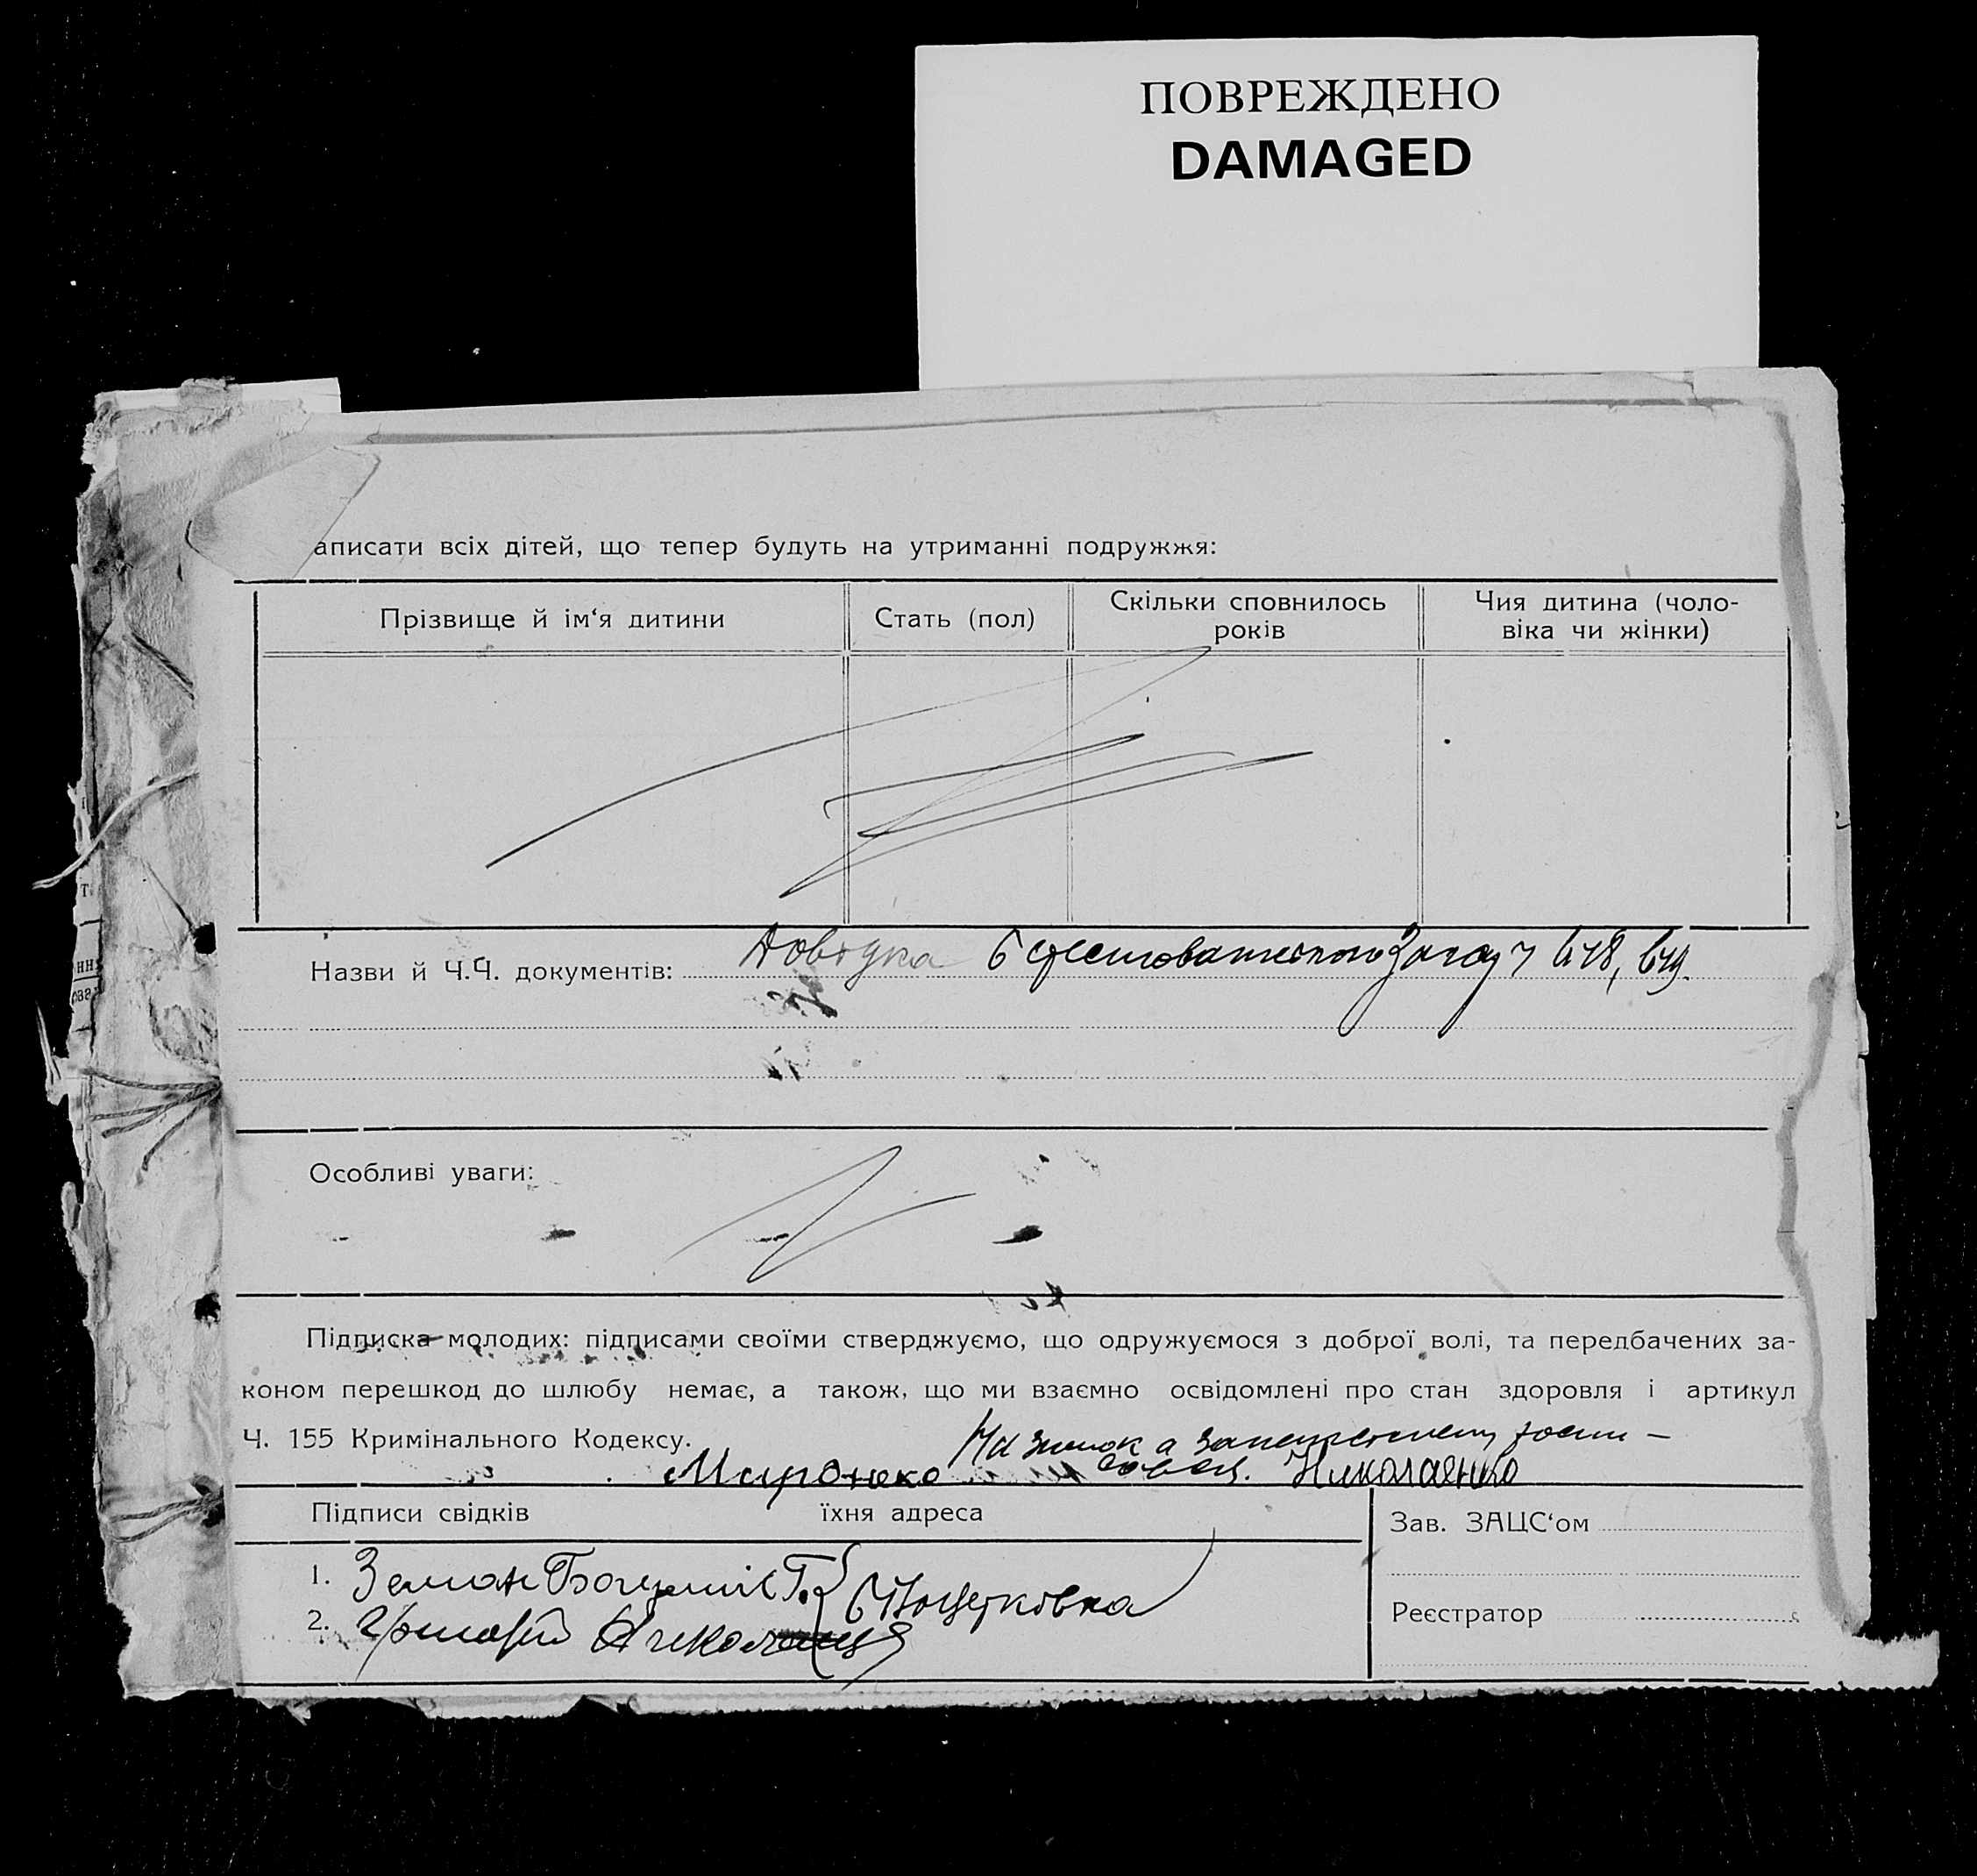 ПОВРЕЖДЕНО
DAMAGED
аписати всіх дітей, що тепер будуть на утриманні подружжя:
Прізвище й ім‘я дитини Стать (пол) Скільки сповнилось років Чия дитина (чоло-віка чи жінки)
Назви й Ч.Ч. документів: Довідка
Особливі уваги:
Підписка молодих: підписами своїми стверджуємо, що одружуємося з доброї волі, та передбачених за-
коном перешкод до шлюбу немає, а також, що ми взаємно освідомлені про стан здоровля і артикул
Ч. 155 Кримінального Кодексу.
Миронько Николаенко
Підписи свідків їхня адреса
Зав. ЗАЦС‘ом
1. Земан
2. Григорій
Реєстратор